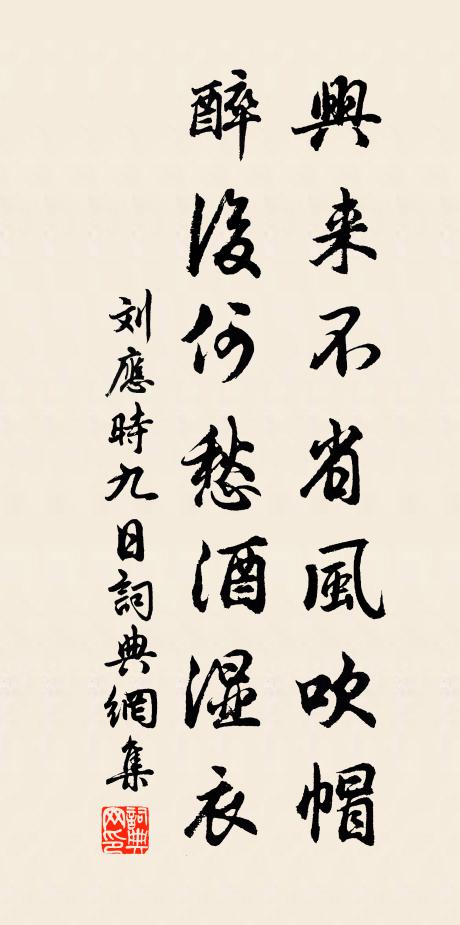 興来不省風吹帽
醉後何愁酒湿衣
刘應時九日詞典網集
詞典网印